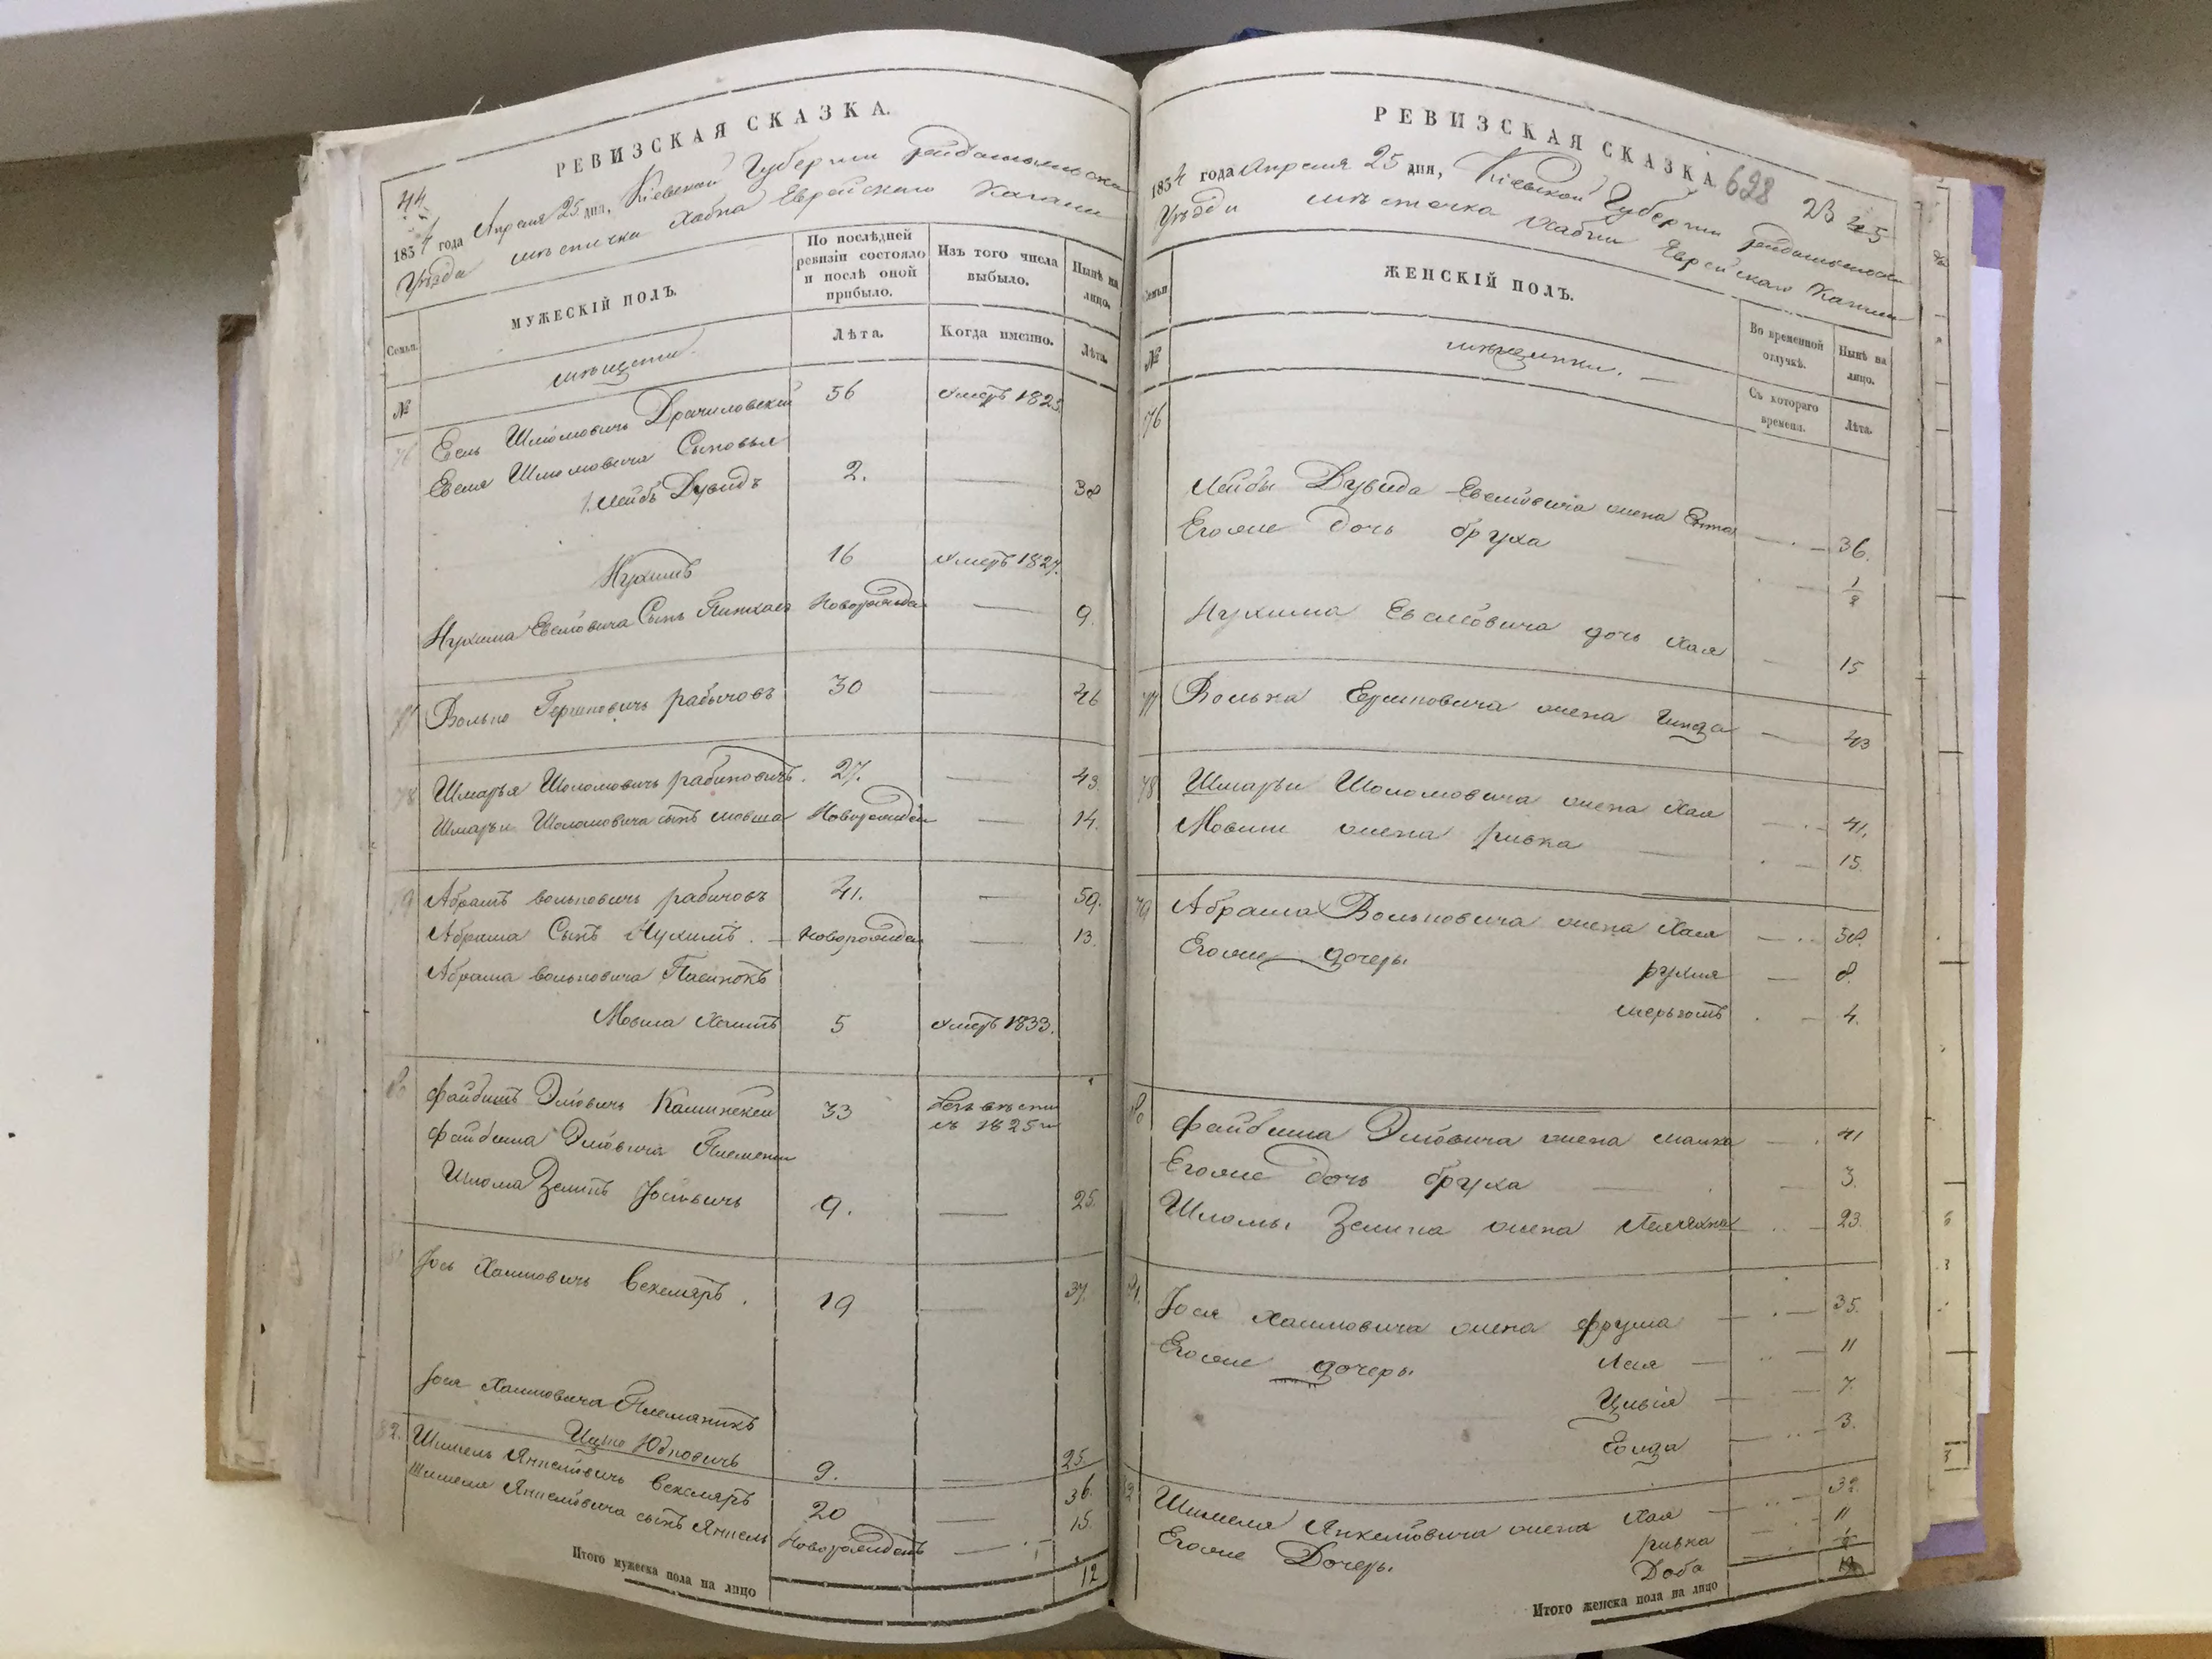 РЕВИЗСКАЯ СКАЗКА.
44
1834 года Апреля 25 дня, Кіевской Губерніи Радомысльскаго
Уѣзда мѣстечка Хабна Еврейскаго Кагала
Семьи.
МУЖЕСКІЙ ПОЛЪ.
По послѣдней ревизіи состояло и послѣ оной прибыло.
Изъ того числа выбыло.
Нынѣ на лицо.
№
мѣщане.
Лѣта.
Когда именно.
Лѣта.
76 Евель Шліомовичь 56 умеръ 1823
Евеля Шліомовича Сыновья
1. Лейбъ Дувидъ 2. — 38
Нухимъ 16 умеръ 1827.
Нухима Евелёвича Сынъ Пинхасъ Новорожден — 9.
77 Волько Гершковичь рабичовъ 30 — 46
78 Шмарья Шоломовичь рабиновичъ. 27. — 43.
Шмарьи Шоломовича сынъ мовша Новорожден — 14.
79 Абрамъ вольковичь рабичовъ 41. — 59.
Абрама Сынъ Нухимъ. — Новорожден — 13.
Абрама вольковича Пасинокъ
Мовша Хаимъ 5 умеръ 1833.
80 Файбишъ Элёвичь Каминскій 33
въ 1825
Файбиша Элёвича Племяникъ
Шлома Зелигъ Іосіовичь 9. — 25.
81 Іось Хаимовичь Векслярь. 19 — 37.
Іося Хаимовича Племяникъ
Ицко Юдковичь 9. — 25.
82. Шимель Янкелёвичь Векслярь 20 — 36.
Шимеля Янкелёвича сынъ Янкель Новорожденъ — 15.
Итого мужеска пола на лицо 12
РЕВИЗСКАЯ СКАЗКА
628 23 45
1834 года Апреля 25 дня, Кіевской Губерніи Радомысльскаго
Уѣзда мѣстечка Хабна Еврейскаго Кагала
Семьи
ЖЕНСКІЙ ПОЛЪ.
Во временной отлучкѣ.
Нынѣ на лицо.
№
мѣщанки. —
Съ котораго времени.
Лѣта.
76
Лейбы Дувида Евелёвича жена — 36.
Егоже дочь бруха — 1/2
Нухима Евелёвича дочь Хая — 15
77 Волька Ершковича жена — 43
78 Шмарьи Шоломовича жена Хая — 41.
Мовши жена ривка — 15
79 Абрама Вольковича жена Хая — 58.
Егоже дочеры рухля — 8.
4.
80 Файбиша Элёвича жена малка — 41
Егоже дочь бруха — 3.
Шломы Зелига жена — 23.
81. Іося Хаимовича жена фрума — 35.
Егоже дочеры Лея — 11
Цивія — 7.
3.
82 Шимеля Янкелёвича жена Хая — 32.
Егоже Дочеры ривка — 11
Доба 1/2
Итого женска пола на лицо